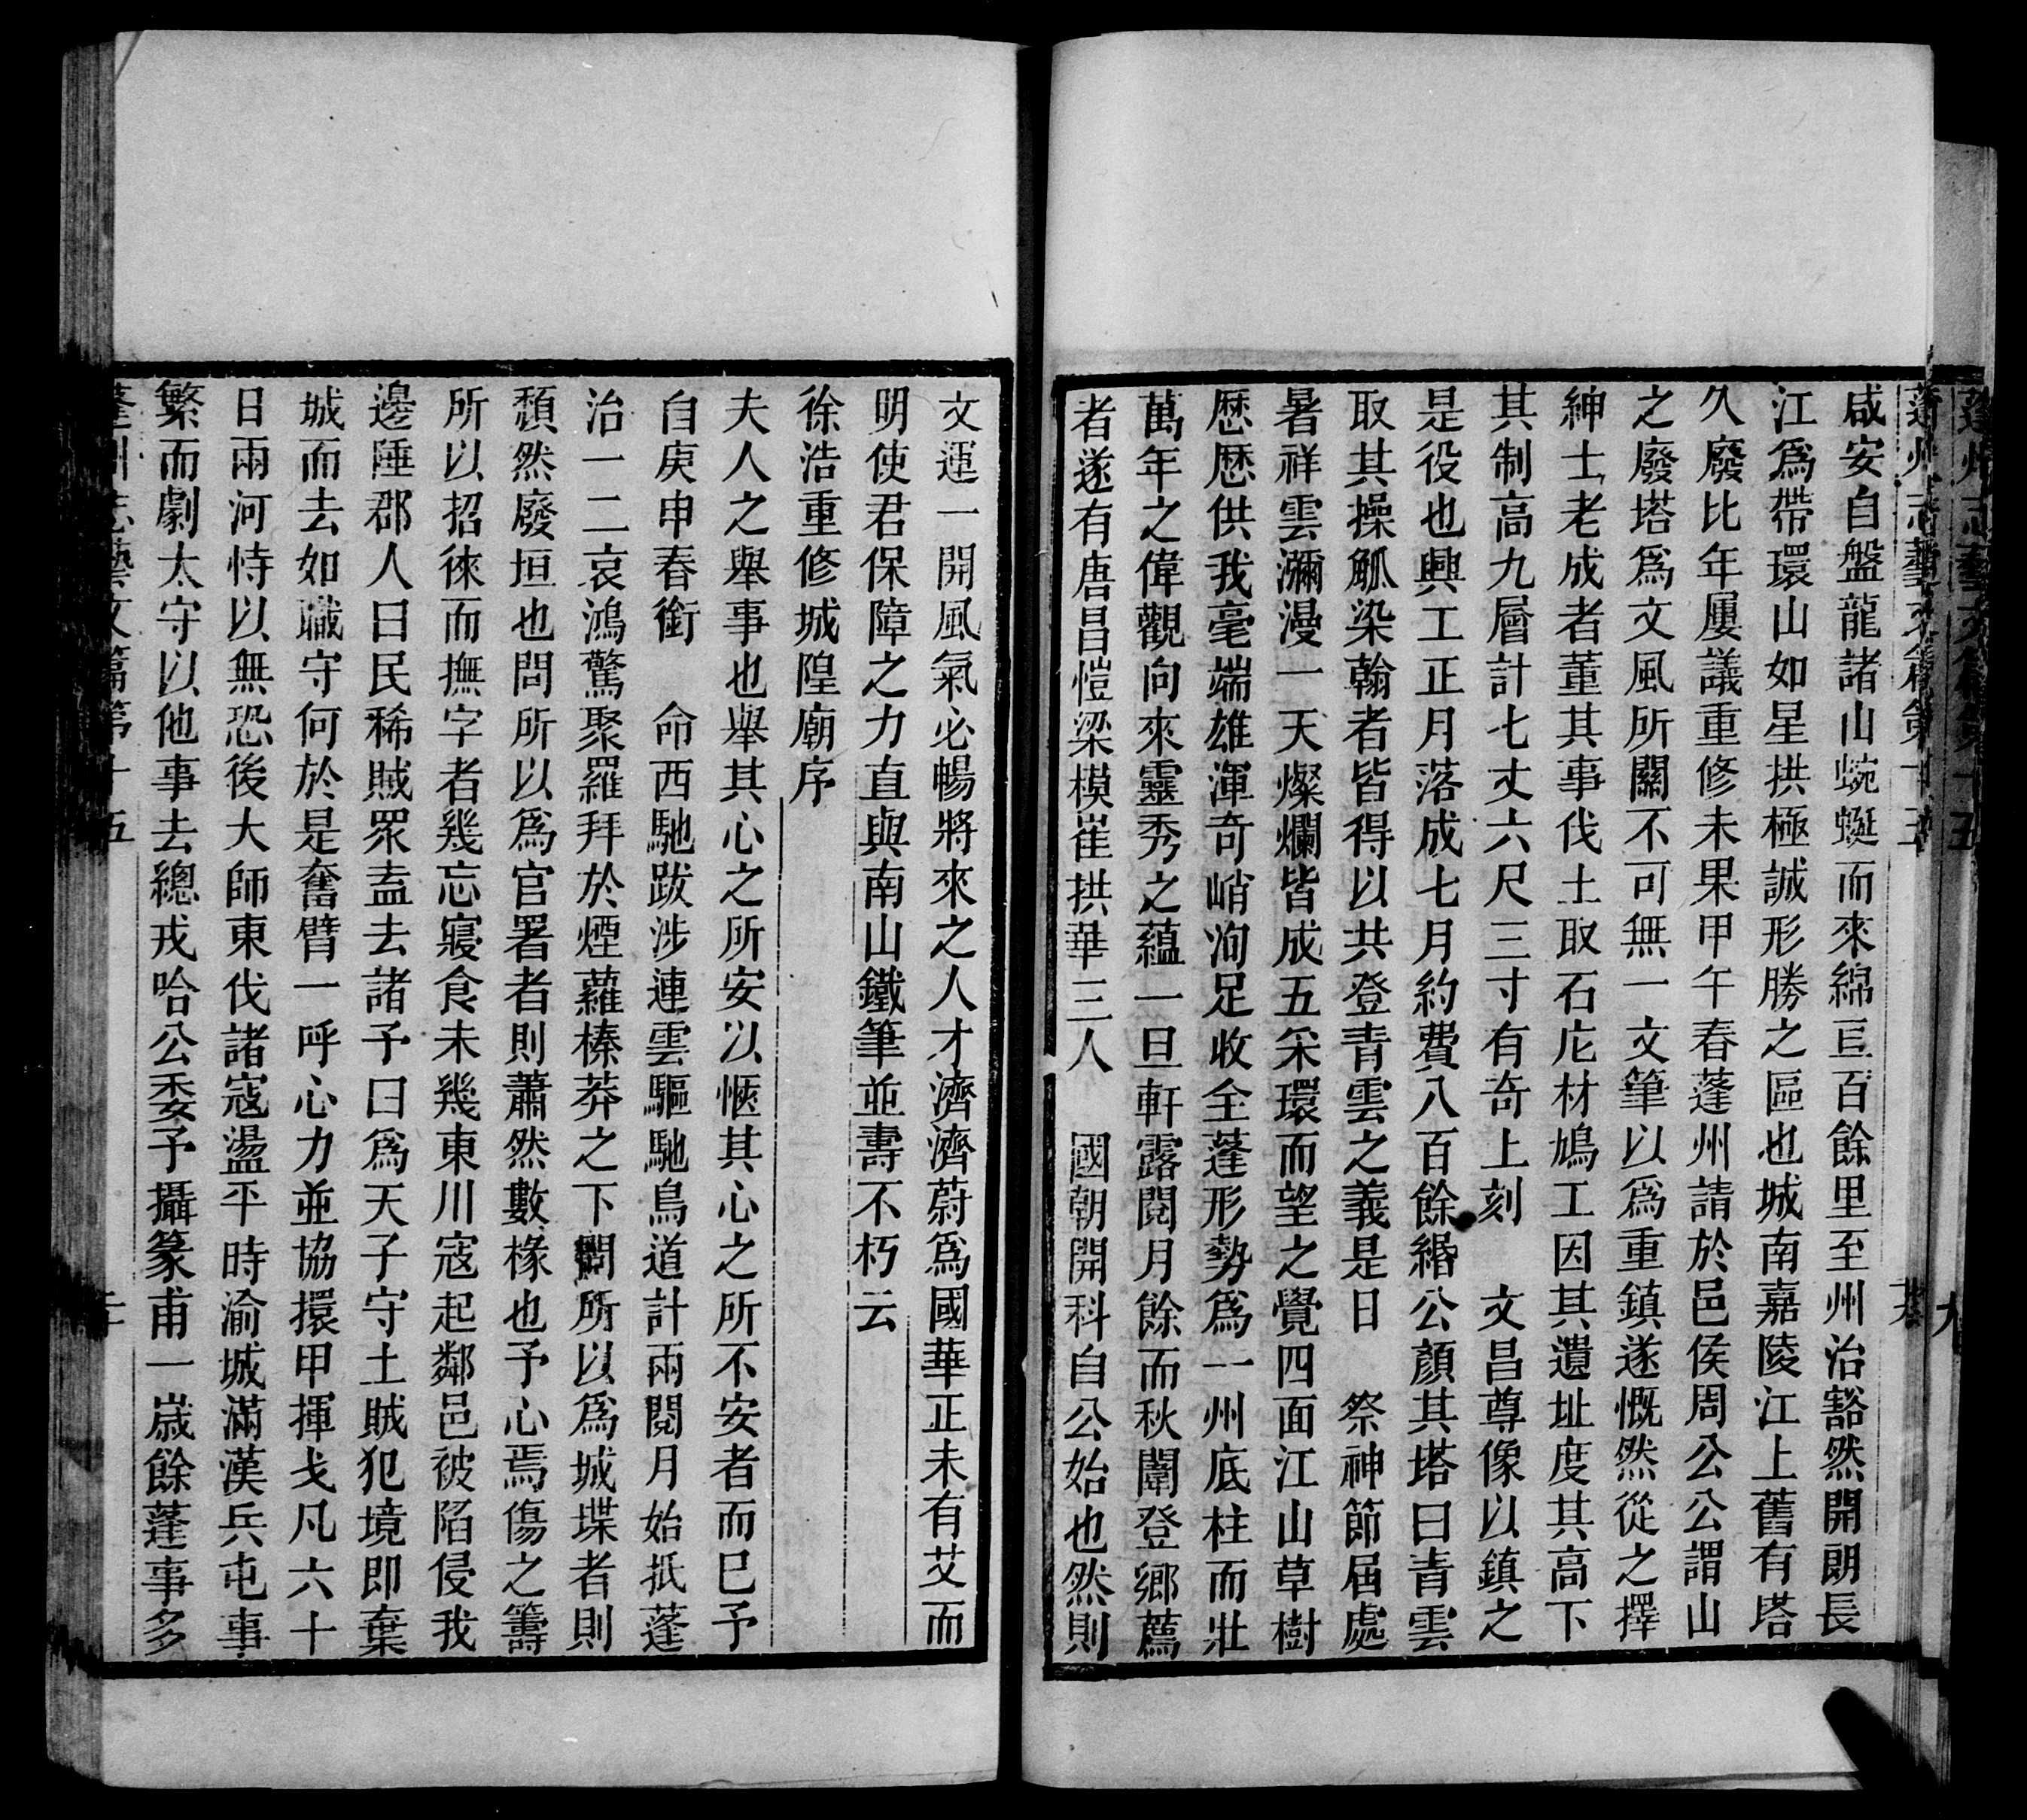 蓬州志藝文篇第十五
咸安自盤龍諸山蜿蜒而來綿亘百餘里至州治豁然開朗長
江爲帶環山如星拱極誠形勝之區也城南嘉陵江上舊有塔
久廢比年屢議重修未果甲午春蓬州請於邑侯周公公謂山
之廢塔爲文風所關不可無一文筆以爲重鎮遂慨然從之擇
紳士老成者董其事伐土取石庀材鳩工因其遺址度其高下
其制高九層計七丈六尺三寸有奇上刻　文昌尊像以鎮之
是役也興工正月落成七月約費八百餘緡公顏其塔曰青雲
取其操觚染翰者皆得以共登青雲之義是日　祭神節屆處
暑祥雲瀰漫一天燦爛皆成五采環而望之覺四面江山草樹
歷歷供我毫端雄渾奇峭洵足收全蓬形勢爲一州底柱而壯
萬年之偉觀向來靈秀之蘊一旦軒露閱月餘而秋闈登鄉薦
者遂有唐昌愷梁模崔拱華三人　國朝開科自公始也然則
文運一開風氣必暢將來之人才濟濟蔚爲國華正未有艾而
明使君保障之力直與南山鐵筆並壽不朽云
徐浩重修城隍廟序
夫人之舉事也舉其心之所安以愜其心之所不安者而已予
自庚申春銜　命西馳跋涉連雲驅馳鳥道計兩閱月始抵蓬
治一二哀鴻驚聚羅拜於煙蘿榛莽之下問所以爲城堞者則
頹然廢垣也問所以爲官署者則蕭然數椽也予心焉傷之籌
所以招徠而撫字者幾忘寢食未幾東川寇起鄰邑被陷侵我
邊陲郡人曰民稀賊眾盍去諸予曰爲天子守土賊犯境即棄
城而去如職守何於是奮臂一呼心力並協擐甲揮戈凡六十
日兩河恃以無恐後大師東伐諸寇盪平時渝城滿漢兵屯事
繁而劇太守以他事去總戎哈公委予攝篆甫一歲餘蓬事多
蓬州志藝文篇第十五